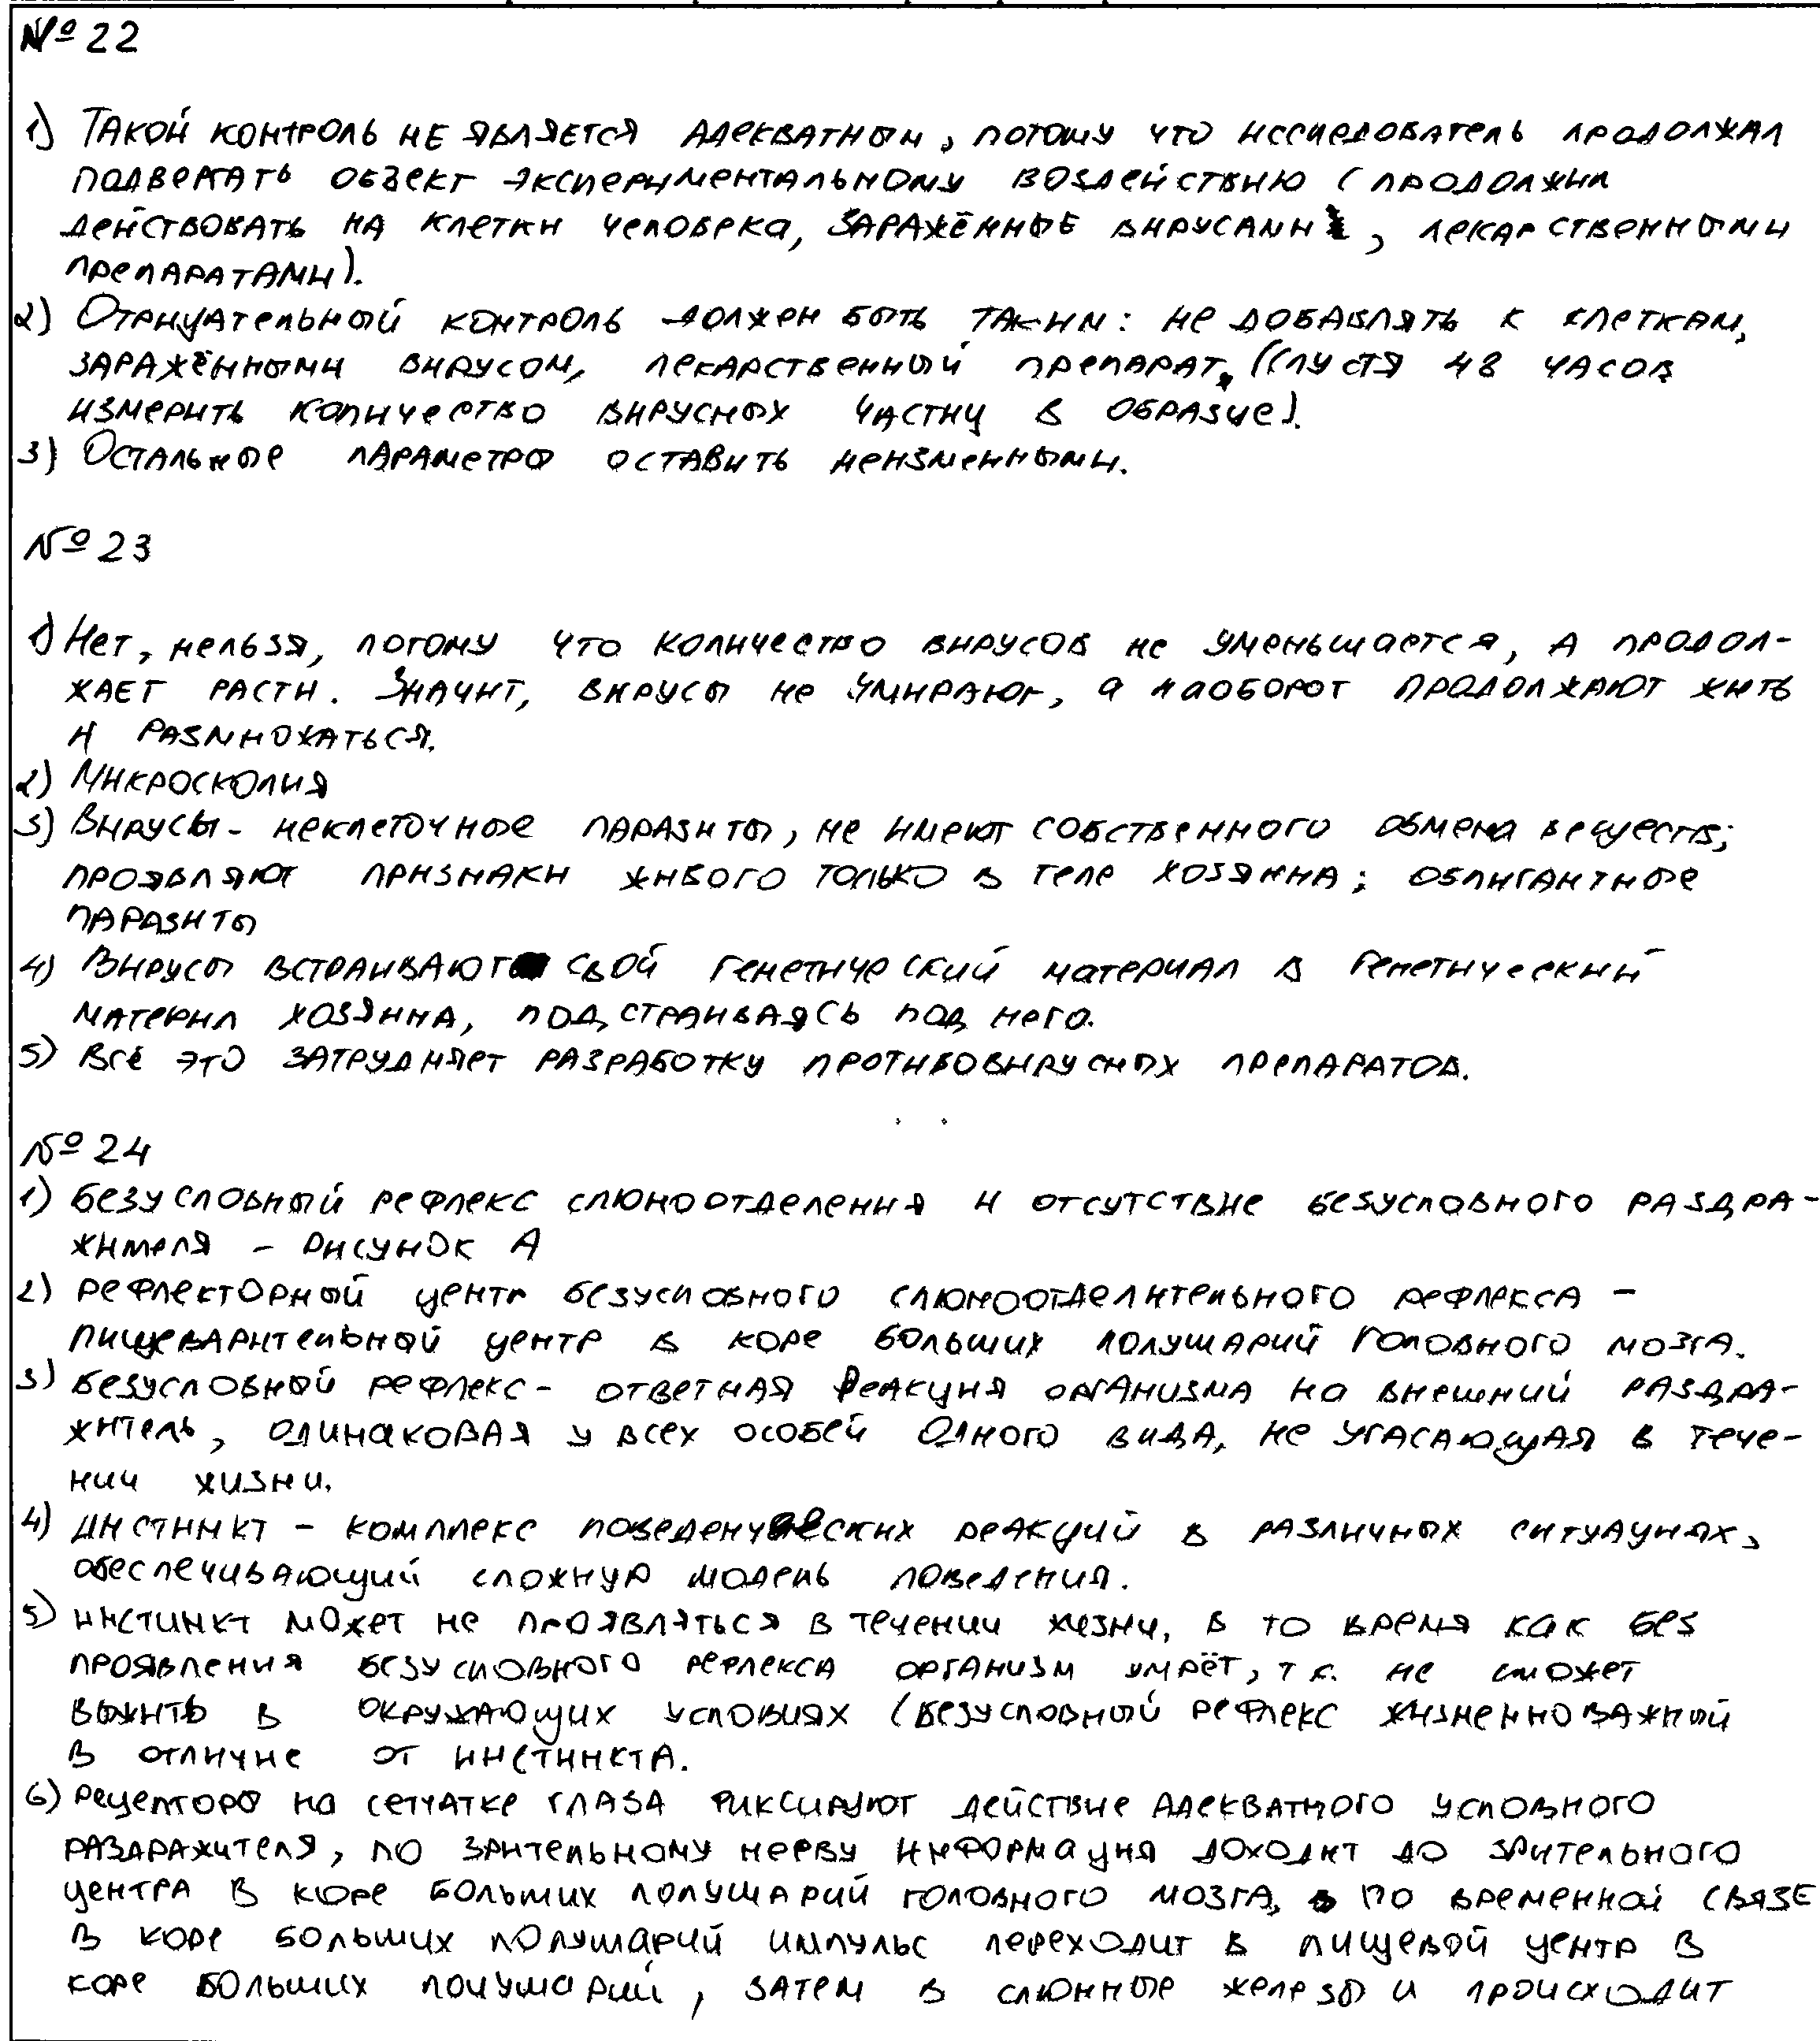 № 22
1) Такой контроль не является адекватным, потому что исследователь продолжал
подвергать объект экспериментальному воздействию (продолжил
действовать на клетки человека, заражённые вирусами, лекарственными
препаратами).
2) Отрицательный контроль должен быть таким: не добавлять к клеткам,
заражёнными вирусом, лекарственный препарат, (спустя 48 часов
измерить количество вирусных частиц в образце).
3) Остальные параметры оставить неизменными.
№ 23
1) Нет, нельзя, потому что количество вирусов не уменьшается, а продол-
жает расти. Значит, вирусы не умирают, а наоборот продолжают жить
и размножаться.
2) Микроскопия
3) Вирусы - неклеточные паразиты, не имеют собственного обмена веществ;
проявляют признаки живого только в теле хозяина; облигантные
паразиты
4) Вирусы встраивают свой генетический материал в генетический
материл хозяина, подстраиваясь под него.
5) Всё это затрудняет разработку противовирусных препаратов.
№ 24
1) Безусловный рефлекс слюноотделения и отсутствие безусловного раздра-
жителя - рисунок А
2) Рефлекторный центр безусловного слюноотделительного рефлекса -
пищеварительный центр в коре больших полушарий головного мозга.
3) Безусловный рефлекс - ответная реакция организма на внешний раздра-
житель, одинаковая у всех особей одного вида, не угасающая в тече-
нии жизни.
4) Инстинкт - комплекс поведенческих реакций в различных ситуациях,
обеспечивающий сложную модель поведения.
5) Инстинкт может не проявляться в течении жизни, в то время как без
проявления безусловного рефлекса организм умрёт, т.к. не сможет
выжить в окружающих условиях (безусловный рефлекс жизненноважный
в отличие от инстинкта.
6) Рецепторы на сетчатке глаза фиксируют действие адекватного условного
раздражителя, по зрительному нерву информация доходит до зрительного
центра в коре больших полушарий головного мозга, по временной связе
в коре больших полушарий импульс переходит в пищевой центр в
коре больших полушарий, затем в слюнные железы и происходит